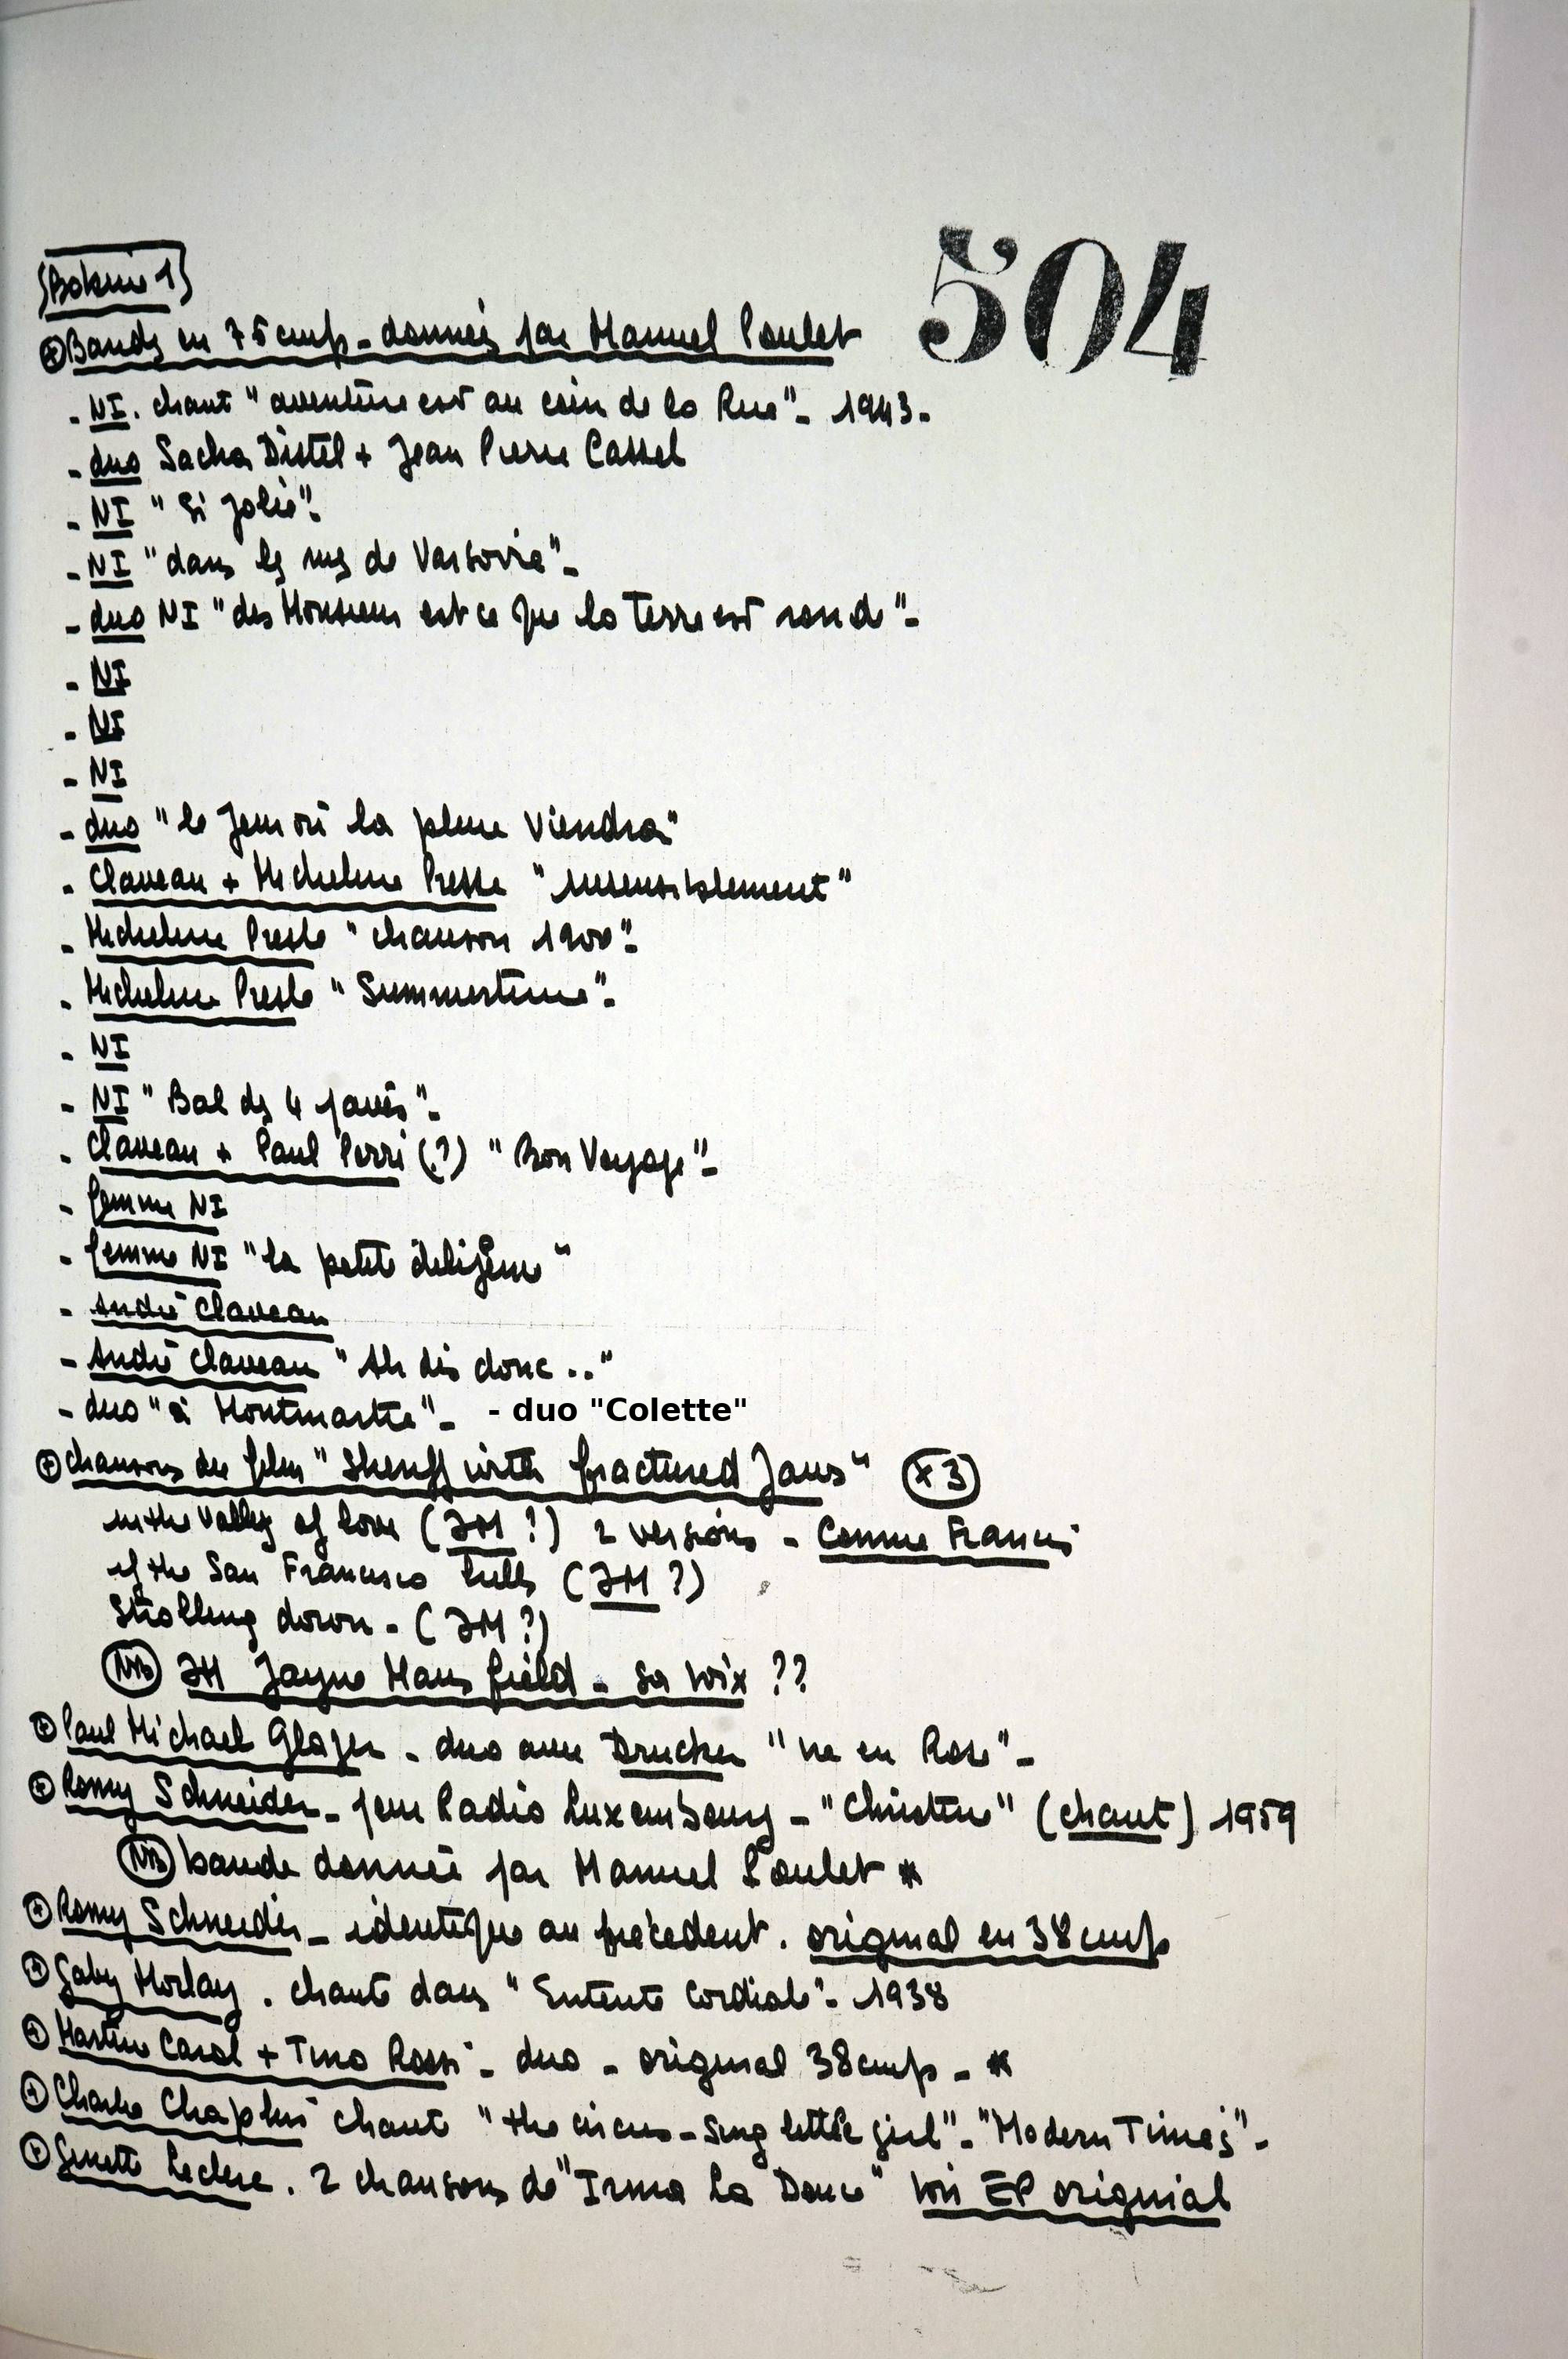 504
Bobine 1
Bandes en 75 cmps - données par Manuel Poulet
- NI. chant "aventure est au coin de la Rue" - 1943 -
- duo Sacha Distel + Jean Pierre Cassel
- NI "Si jolie" -
- NI "dans les rues de Varsovie" -
- duo NI "des Monsieur est ce que la Terre est ronde" -
- NI
- NI
- NI
- duo "le jour où la pluie viendra"
- Claveau + Micheline Presle "insensiblement"
- Micheline Presle "chanson 1900" -
- Micheline Presle "Summertime" -
- NI
- NI "Bal des 4 pavés" -
- Claveau + Paul Perri (?) "Bon Voyage" -
- femme NI
- femme NI "la petite"
- André Claveau
- André Claveau "Ah dis donc .."
- duo "à Montmartre" - - duo "Colette"
chansons du film "Sheriff with fractured Jaws" x3
in the Valley of love (JM ?) 2 versions - Connie Francis
if the San Francisco hills (JM ?)
Strolling down - (JM ?)
NB JM Jayne Mansfield - sa voix ??
Paul Michael Glaser - duo avec Drucker "vie en Rose" -
Romy Schneider - pour Radio Luxembourg - "Christine" (chant) 1959
NB bande donnée par Manuel Poulet *
Romy Schneider - identique au précédent. original en 38 cmps
Gaby Morlay. chante dans "Entente Cordiale" - 1938
Martine Carol + Tino Rossi - duo - original 38 cmps - *
Charlie Chaplin chante "the circus - sing little girl" - "Modern Times" -
Ginette Leclerc. 2 chansons de "Irma La Douce" voir EP original